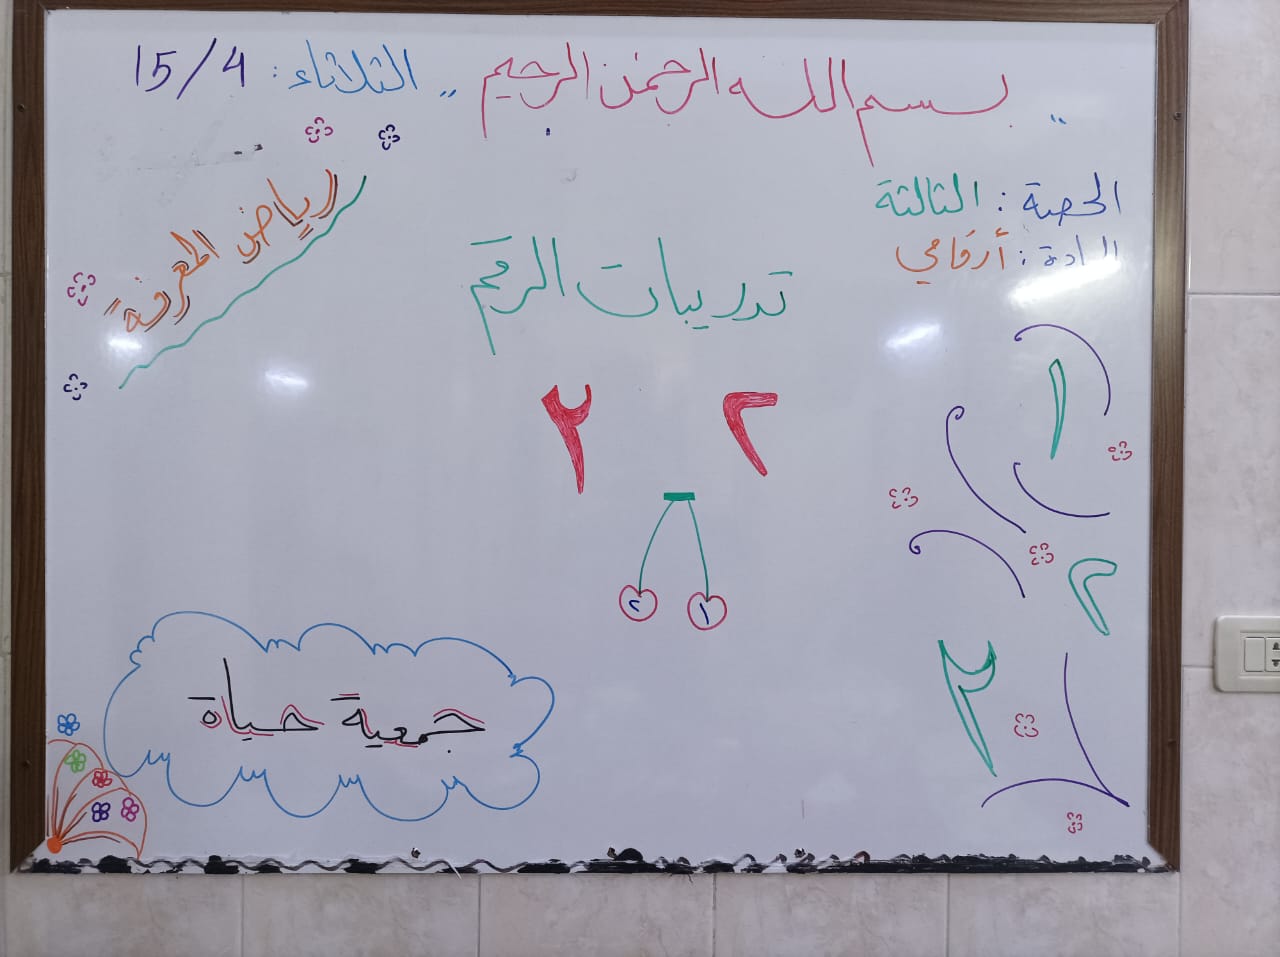 .. بسم الله الرحمن الرحيم .. الثلاثاء: 15/4
الحصة: الثالثة
المادة: أرقامي
رياض المعرفة
تدريبات الرقم
٢ ٢
١
٢
١
٢
٢
جمعية حياة